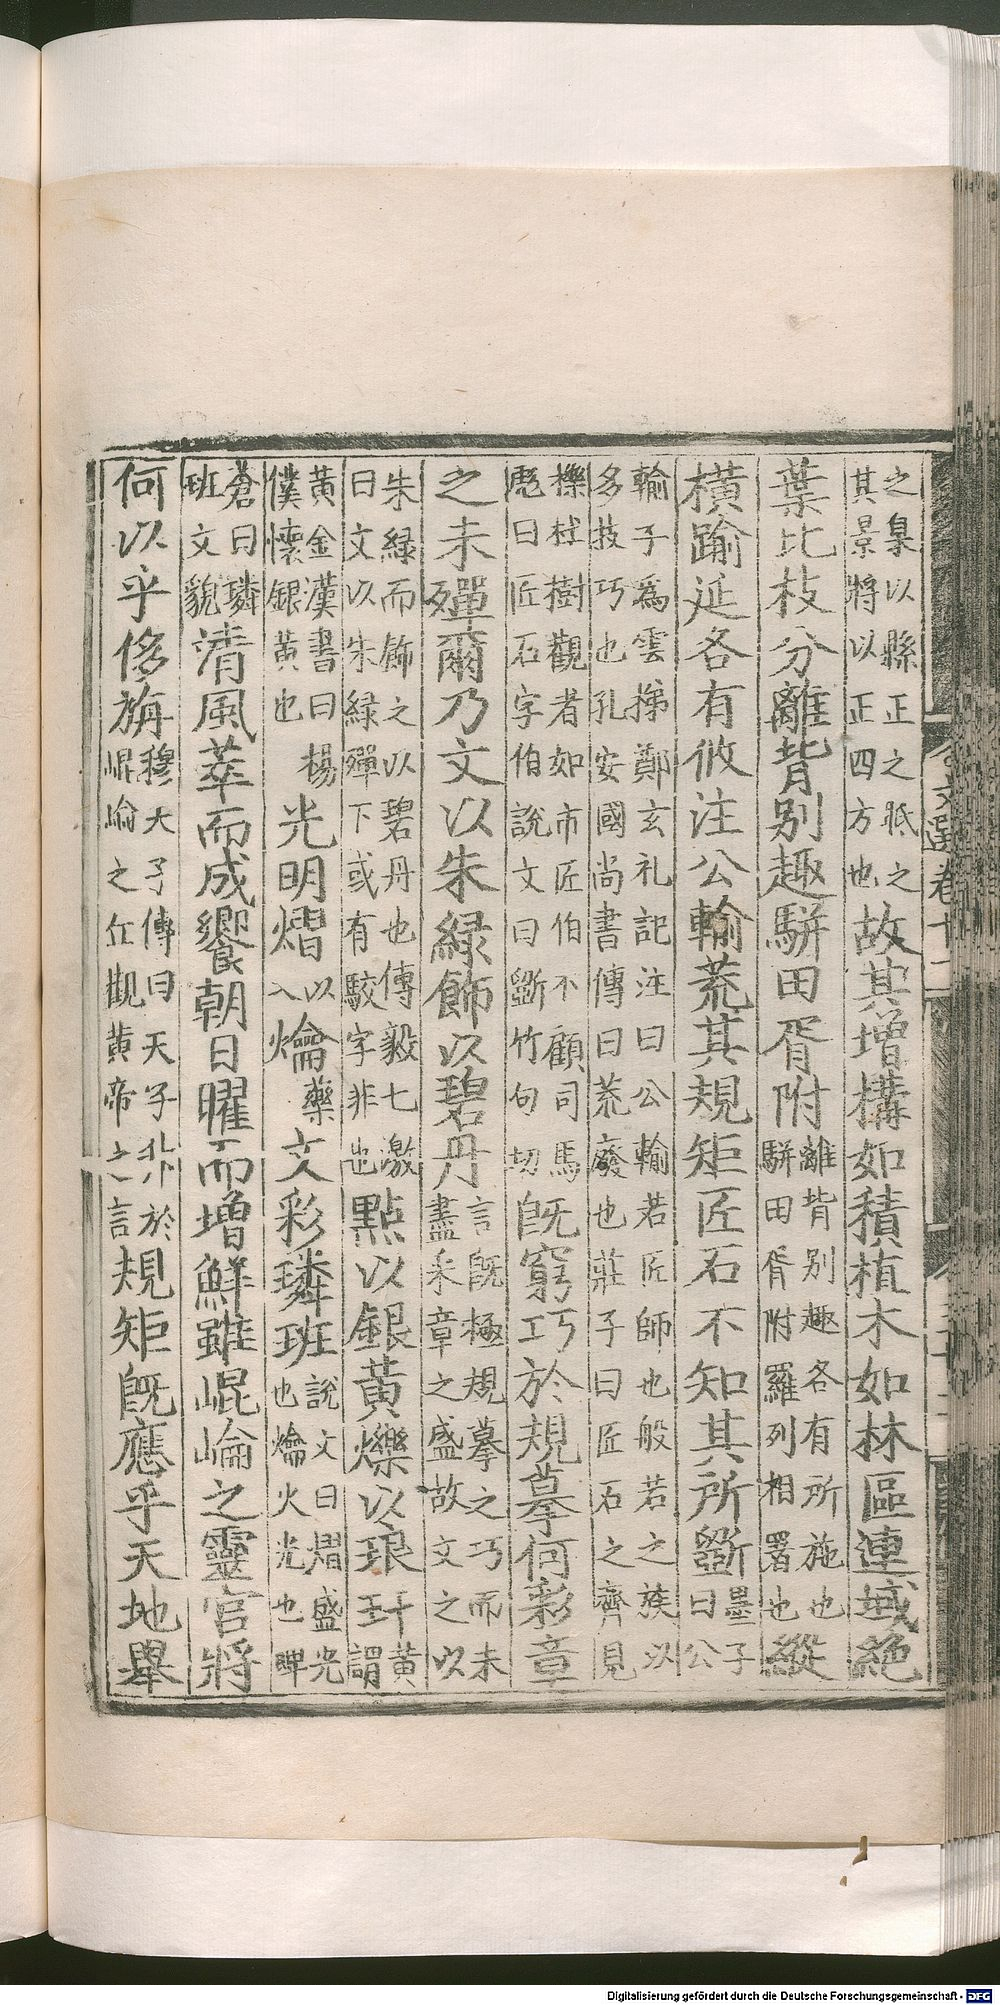 之臬以縣正之眂之其景將以正四方也故其增構如積植木如林區連域絕
葉比枝分離背別趣駢田胥附離背別趣各有所施也駢田胥附羅列相署也縱
橫踰延各有攸注公輸荒其規矩匠石不知其所斲墨子曰公
輸子為雲梯鄭玄礼記注曰公輸若匠師也般若之蔟以多技巧也孔安國尚書傳曰荒廢也莊子曰匠石之齊見
櫟杜樹觀者如市匠伯不顧司馬彪曰匠石字伯說文曰斲竹句切旣窮巧於規摹何彩章
之未殫爾乃文以朱綠飾以碧丹言旣極規摹之巧而未盡采章之盛故文之以
朱綠而飾之以碧丹也傳毅七激曰文以朱綠殫下或有駮字非也點以銀黃爍以琅玕黃謂
黃金漢書曰楊僕懷銀黃也光明熠以入爚藥文彩璘班說文曰熠盛光也爚火光也睥
蒼曰璘班文貌清風萃而成饗朝日曜而增鮮雖崐崘之靈宮將
何以乎侈旃穆天子傳曰天子升於崐崘之丘觀黃帝之言規矩旣應乎天地舉
文選卷十一
Digitalisierung gefördert durch die Deutsche Forschungsgemeinschaft - DFG